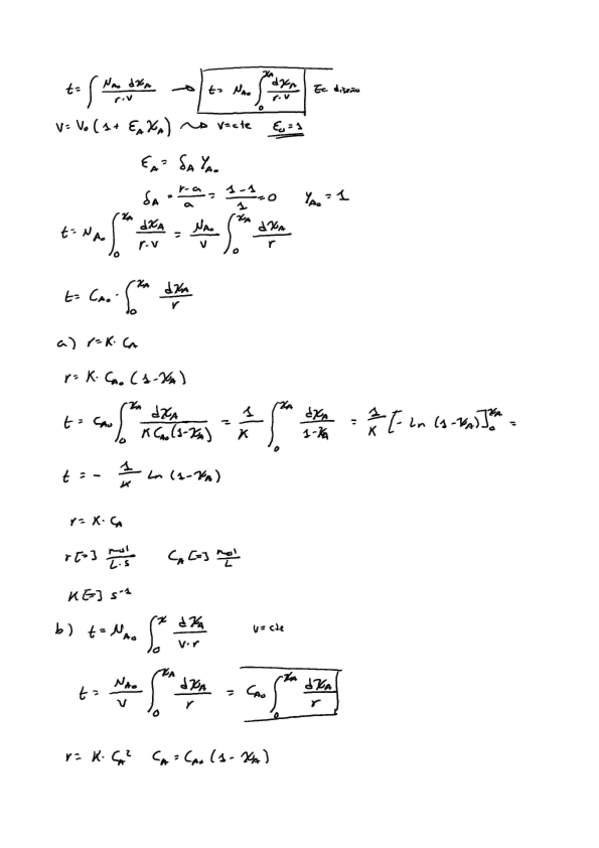 t = ∫ N_A₀ dX_A / r·V → t = N_A₀ ∫₀^X_A dX_A / r·V Ec diseño
V = V₀ (1 + ε_A X_A) ⇝ V = cte ε_v = 1
ε_A = δ_A Y_A₀
δ_A = r-a / a = 1-1 / 1 = 0 Y_A₀ = 1
t = N_A₀ ∫₀^X_A dX_A / r·V = N_A₀ / V ∫₀^X_A dX_A / r
t = C_A₀ · ∫₀^X_A dX_A / r
a) r = K · C_A
r = K · C_A₀ (1 - X_A)
t = C_A₀ ∫₀^X_A dX_A / K C_A₀ (1-X_A) = 1/K ∫₀^X_A dX_A / 1-X_A = 1/K [- Ln (1-X_A)]₀^X_A =
t = - 1/K Ln (1-X_A)
r = K · C_A
r [=] mol / L·s C_A [=] mol / L
K [=] s⁻¹
b) t = N_A₀ ∫₀^X dX_A / V·r V = cte
t = N_A₀ / V ∫₀^X_A dX_A / r = C_A₀ ∫₀^X_A dX_A / r
r = K · C_A² C_A = C_A₀ (1 - X_A)